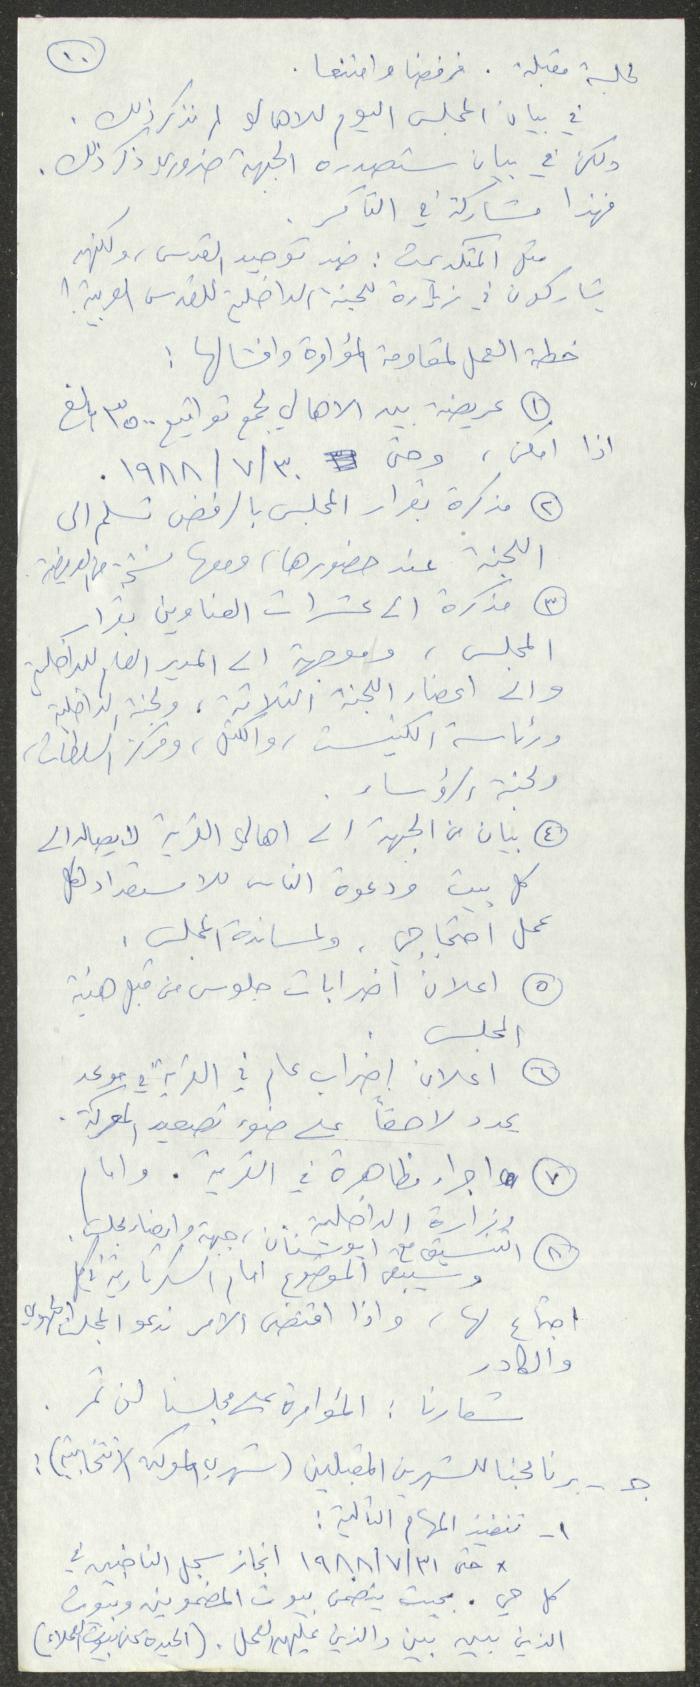 ١٠
لجلسة مقبلة . فرفضنا وامتنعنا .
في بيان المجلس اليوم للاهالي لم نذكر ذلك .
ولكن في بيان ستصدره الجبهة ضروري ذكر ذلك .
فهذا مشاركة في التآمر .
مثل المتكديمت : ضد توحيد القدس ، ولكنهم
يشاركون في زيارة للجنة الداخلية للقدس العربية !
خطة العمل لمقاومة المؤامرة وافشالها :
١ عريضة بين الاهالي لجمع تواقيع ٣٥٠٠
اذا امكن ، وحتى ١٩٨٨/٧/٣٠ .
٢ مذكرة بقرار المجلس بالرفض تسلم الى
اللجنة عند حضورها ، ومعها نسخة من العريضة .
٣ مذكرة الى عشرات العناوين بقرار
المجلس ، وموجهة الى المدير العام للداخلية
والى اعضاء اللجنة الثلاثة ، ولجنة الداخلية
ورئاسة الكنيست ، والكتل ، ومركز السلطات ،
ولجنة الرؤساء .
٤ بيان من الجبهة الى اهالي القرية لايصاله الى
كل بيت ودعوة الناس للاستعداد لكل
عمل احتجاجي ، ولمساندة المجلس .
٥ اعلان اضرابات جلوس من قبل هيئة
المجلس .
٦ اعلان إضراب عام في القرية في موعد
يحدد لاحقاً على ضوء تصعيد المعركة .
٧ اجراء مظاهرة في القرية . وامام
وزارة الداخلية
٨ التنسيق مع ابو سنان ، جبهة واعضاء مجلس .
وسيبقى الموضوع امام السكرتارية في كل
اجتماع لها ، واذا اقتضى الامر ندعو المجلس الجبهوي
والكادر
شعارنا : المؤامرة على مجلسنا لن تمر .
جـ - برنامجنا للشهرين المقبلين (شهري المعركة الانتخابية) :
١- تنفيذ المهام التالية :
* حتى ١٩٨٨/٧/٣١ انجاز سجل الناخبين في
كل حي . بحيث يتضمن بيوت المضمونين وبيوت
الذين بين بين والذين عليهم العمل .